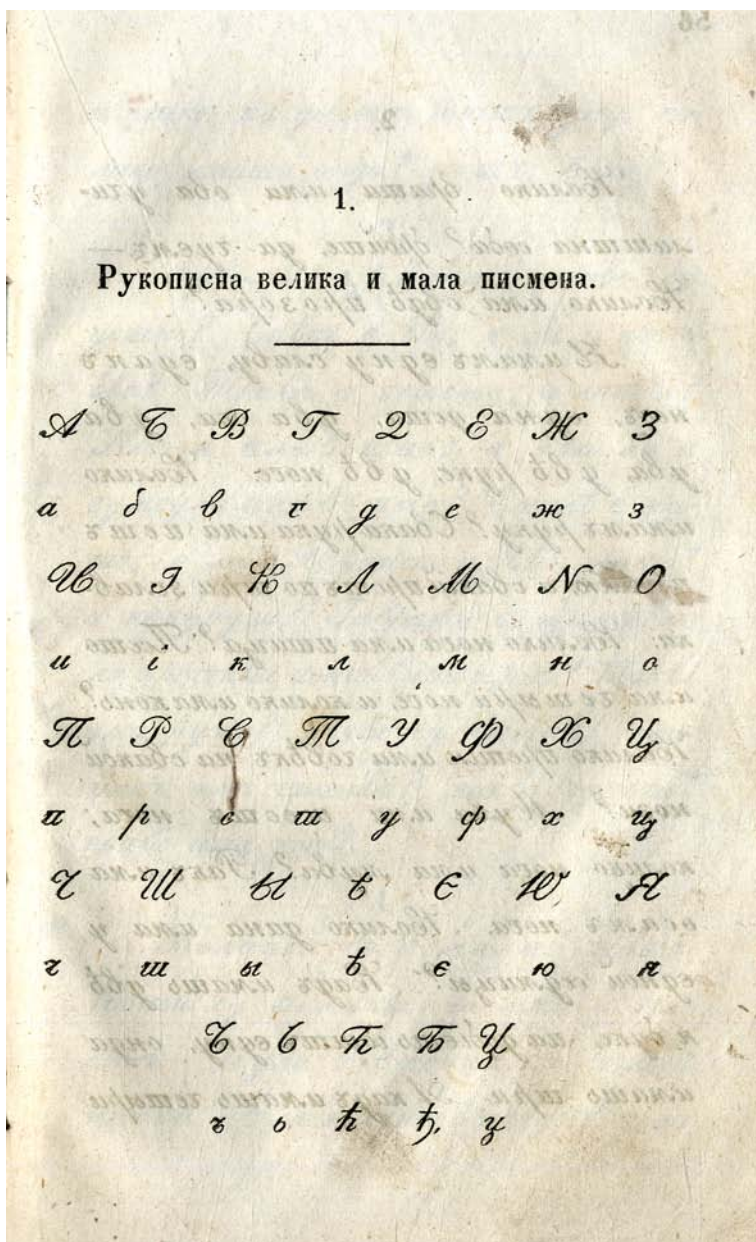 1.
Рукописна велика и мала писмена.
А Б В Г Д Е Ж З
а б в г д е ж з
И І К Л М N О
и і к л м н о
П Р С Т У Ф Х Ц
п р с т у ф х ц
Ч Ш Ы Ѣ Є Ю Я
ч ш ы ѣ є ю я
Ъ Ь Ћ Ђ Џ
ъ ь ћ ђ џ